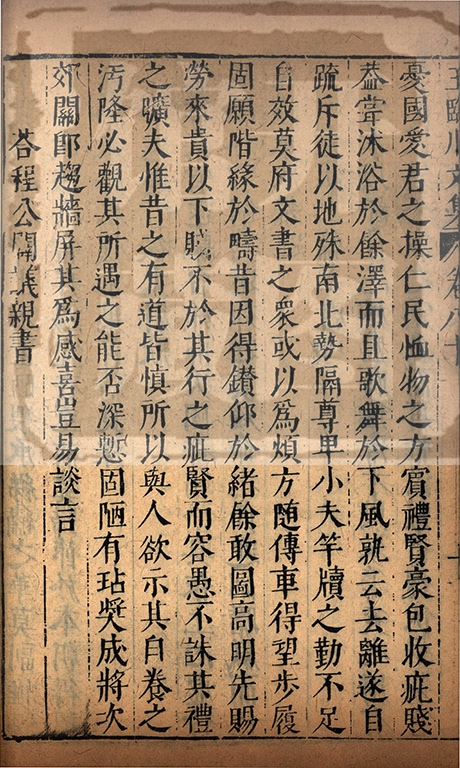 王臨川文集 卷八十
憂國愛君之操仁民恤物之方賓禮賢豪包收疵賤
葢甞沐浴於餘澤而且歌舞於下風孰云去離遂自
疏斥徒以地殊南北勢隔尊卑小夫竿牘之勤不足
自效莫府文書之衆或以為煩方隨傳車得望步履
固願階緣於疇昔因得鑚仰於緒餘敢圖高明先賜
勞來貴以下賤不於其行之疵賢而容愚不誅其禮
之曠夫惟昔之有道皆慎所以與人欲示其自養之
汚隆必觀其所遇之能否深慙固陋有玷奬成將次
郊關卽趨牆屏其為感喜豈易談言
荅程公闢議親書